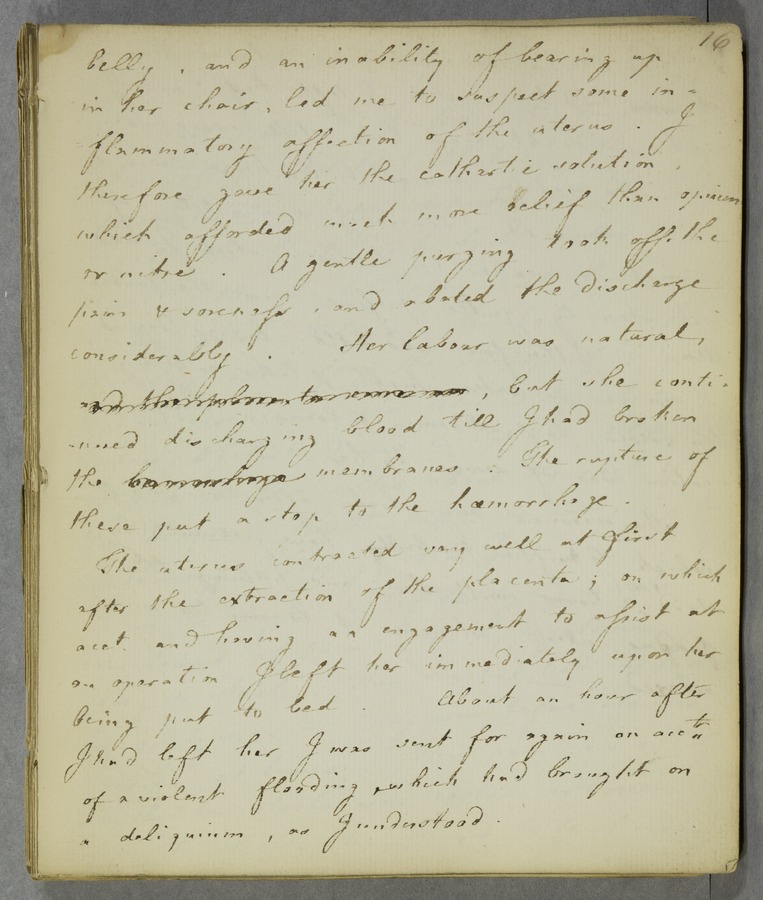 16
belly, and an inability of bearing up
in her chair, led me to suspect some in=
flammatory affection of the uterus. I
therefore gave her the cathartic solution,
which afforded much more relief than opium
or nitre. A gentle purging took off the
pain & soreness, and abated the discharge
considerably. Her labour was natural,
and the placenta came, but she conti-
-nued discharging blood till I had broken
the membranes. The rupture of
these put a stop to the hæmorrhage.
The uterus contracted very well at first
after the extraction of the placenta; on which
acct. and having an engagement to assist at
an operation I left her immediately upon her
being put to bed. About an hour after
I had left her I was sent for again on acct
of a violent flooding, which had brought on
a deliquium, as I understood.